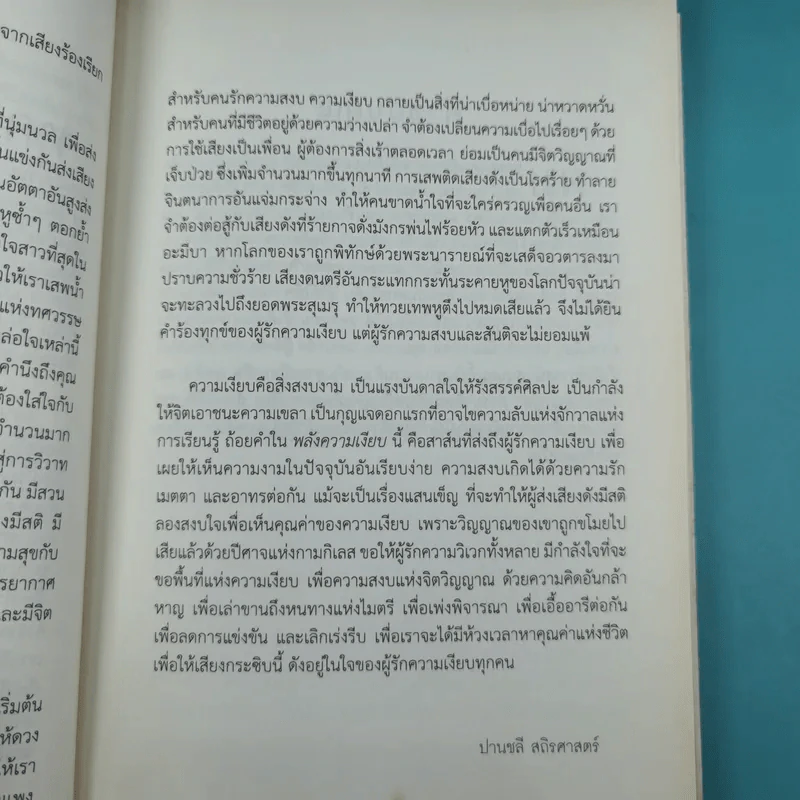 จากเสียงร้องเรียก
ที่นุ่มนวล เพื่อส่ง
นแข่งกันส่งเสียง
นอัตตาอันสูงส่ง
หูซ้ำๆ ตอกย้ำ
งใจสาวที่สุดใน
ให้เราเสพน้ำ
แห่งทศวรรษ
ล่อใจเหล่านี้
คำนึงถึงคุณ
ต้องใส่ใจกับ
จำนวนมาก
สู่การวิวาท
กัน มีสวน
งมีสติ มี
ามสุขกับ
รยากาศ
และมีจิต
ริ่มต้น
ห้ดวง
ให้เรา
แพง
สำหรับคนรักความสงบ ความเงียบ กลายเป็นสิ่งที่น่าเบื่อหน่าย น่าหวาดหวั่น
สำหรับคนที่มีชีวิตอยู่ด้วยความว่างเปล่า จำต้องเปลี่ยนความเบื่อไปเรื่อยๆ ด้วย
การใช้เสียงเป็นเพื่อน ผู้ต้องการสิ่งเร้าตลอดเวลา ย่อมเป็นคนมีจิตวิญญาณที่
เจ็บป่วย ซึ่งเพิ่มจำนวนมากขึ้นทุกนาที การเสพติดเสียงดังเป็นโรคร้าย ทำลาย
จินตนาการอันแจ่มกระจ่าง ทำให้คนขาดน้ำใจที่จะใคร่ครวญเพื่อคนอื่น เรา
จำต้องต่อสู้กับเสียงดังที่ร้ายกาจดั่งมังกรพ่นไฟร้อยหัว และแตกตัวเร็วเหมือน
อะมีบา หากโลกของเราถูกพิทักษ์ด้วยพระนารายณ์ที่จะเสด็จอวตารลงมา
ปราบความชั่วร้าย เสียงดนตรีอันกระแทกกระทั้นระคายหูของโลกปัจจุบันน่า
จะทะลวงไปถึงยอดพระสุเมรุ ทำให้ทวยเทพหูตึงไปหมดเสียแล้ว จึงไม่ได้ยิน
คำร้องทุกข์ของผู้รักความเงียบ แต่ผู้รักความสงบและสันติจะไม่ยอมแพ้
ความเงียบคือสิ่งสงบงาม เป็นแรงบันดาลใจให้รังสรรค์ศิลปะ เป็นกำลัง
ให้จิตเอาชนะความเขลา เป็นกุญแจดอกแรกที่อาจไขความลับแห่งจักวาลแห่ง
การเรียนรู้ ถ้อยคำใน พลังความเงียบ นี้ คือสาส์นที่ส่งถึงผู้รักความเงียบ เพื่อ
เผยให้เห็นความงามในปัจจุบันอันเรียบง่าย ความสงบเกิดได้ด้วยความรัก
เมตตา และอาทรต่อกัน แม้จะเป็นเรื่องแสนเข็ญ ที่จะทำให้ผู้ส่งเสียงดังมีสติ
ลองสงบใจเพื่อเห็นคุณค่าของความเงียบ เพราะวิญญาณของเขาถูกขโมยไป
เสียแล้วด้วยปีศาจแห่งกามกิเลส ขอให้ผู้รักความวิเวกทั้งหลาย มีกำลังใจที่จะ
ขอพื้นที่แห่งความเงียบ เพื่อความสงบแห่งจิตวิญญาณ ด้วยความคิดอันกล้า
หาญ เพื่อเล่าขานถึงหนทางแห่งไมตรี เพื่อเพ่งพิจารณา เพื่อเอื้ออารีต่อกัน
เพื่อลดการแข่งขัน และเลิกเร่งรีบ เพื่อเราจะได้มีห้วงเวลาหาคุณค่าแห่งชีวิต
เพื่อให้เสียงกระซิบนี้ ดังอยู่ในใจของผู้รักความเงียบทุกคน
ปานชลี สถิรศาสตร์